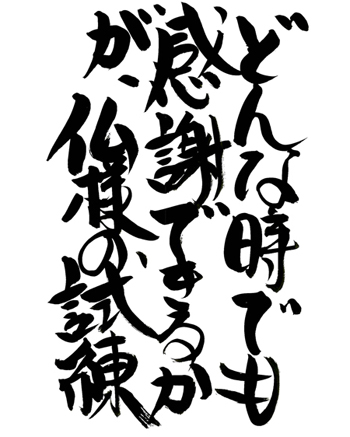 どんな時でも
感謝できるか
が、仏様の試練